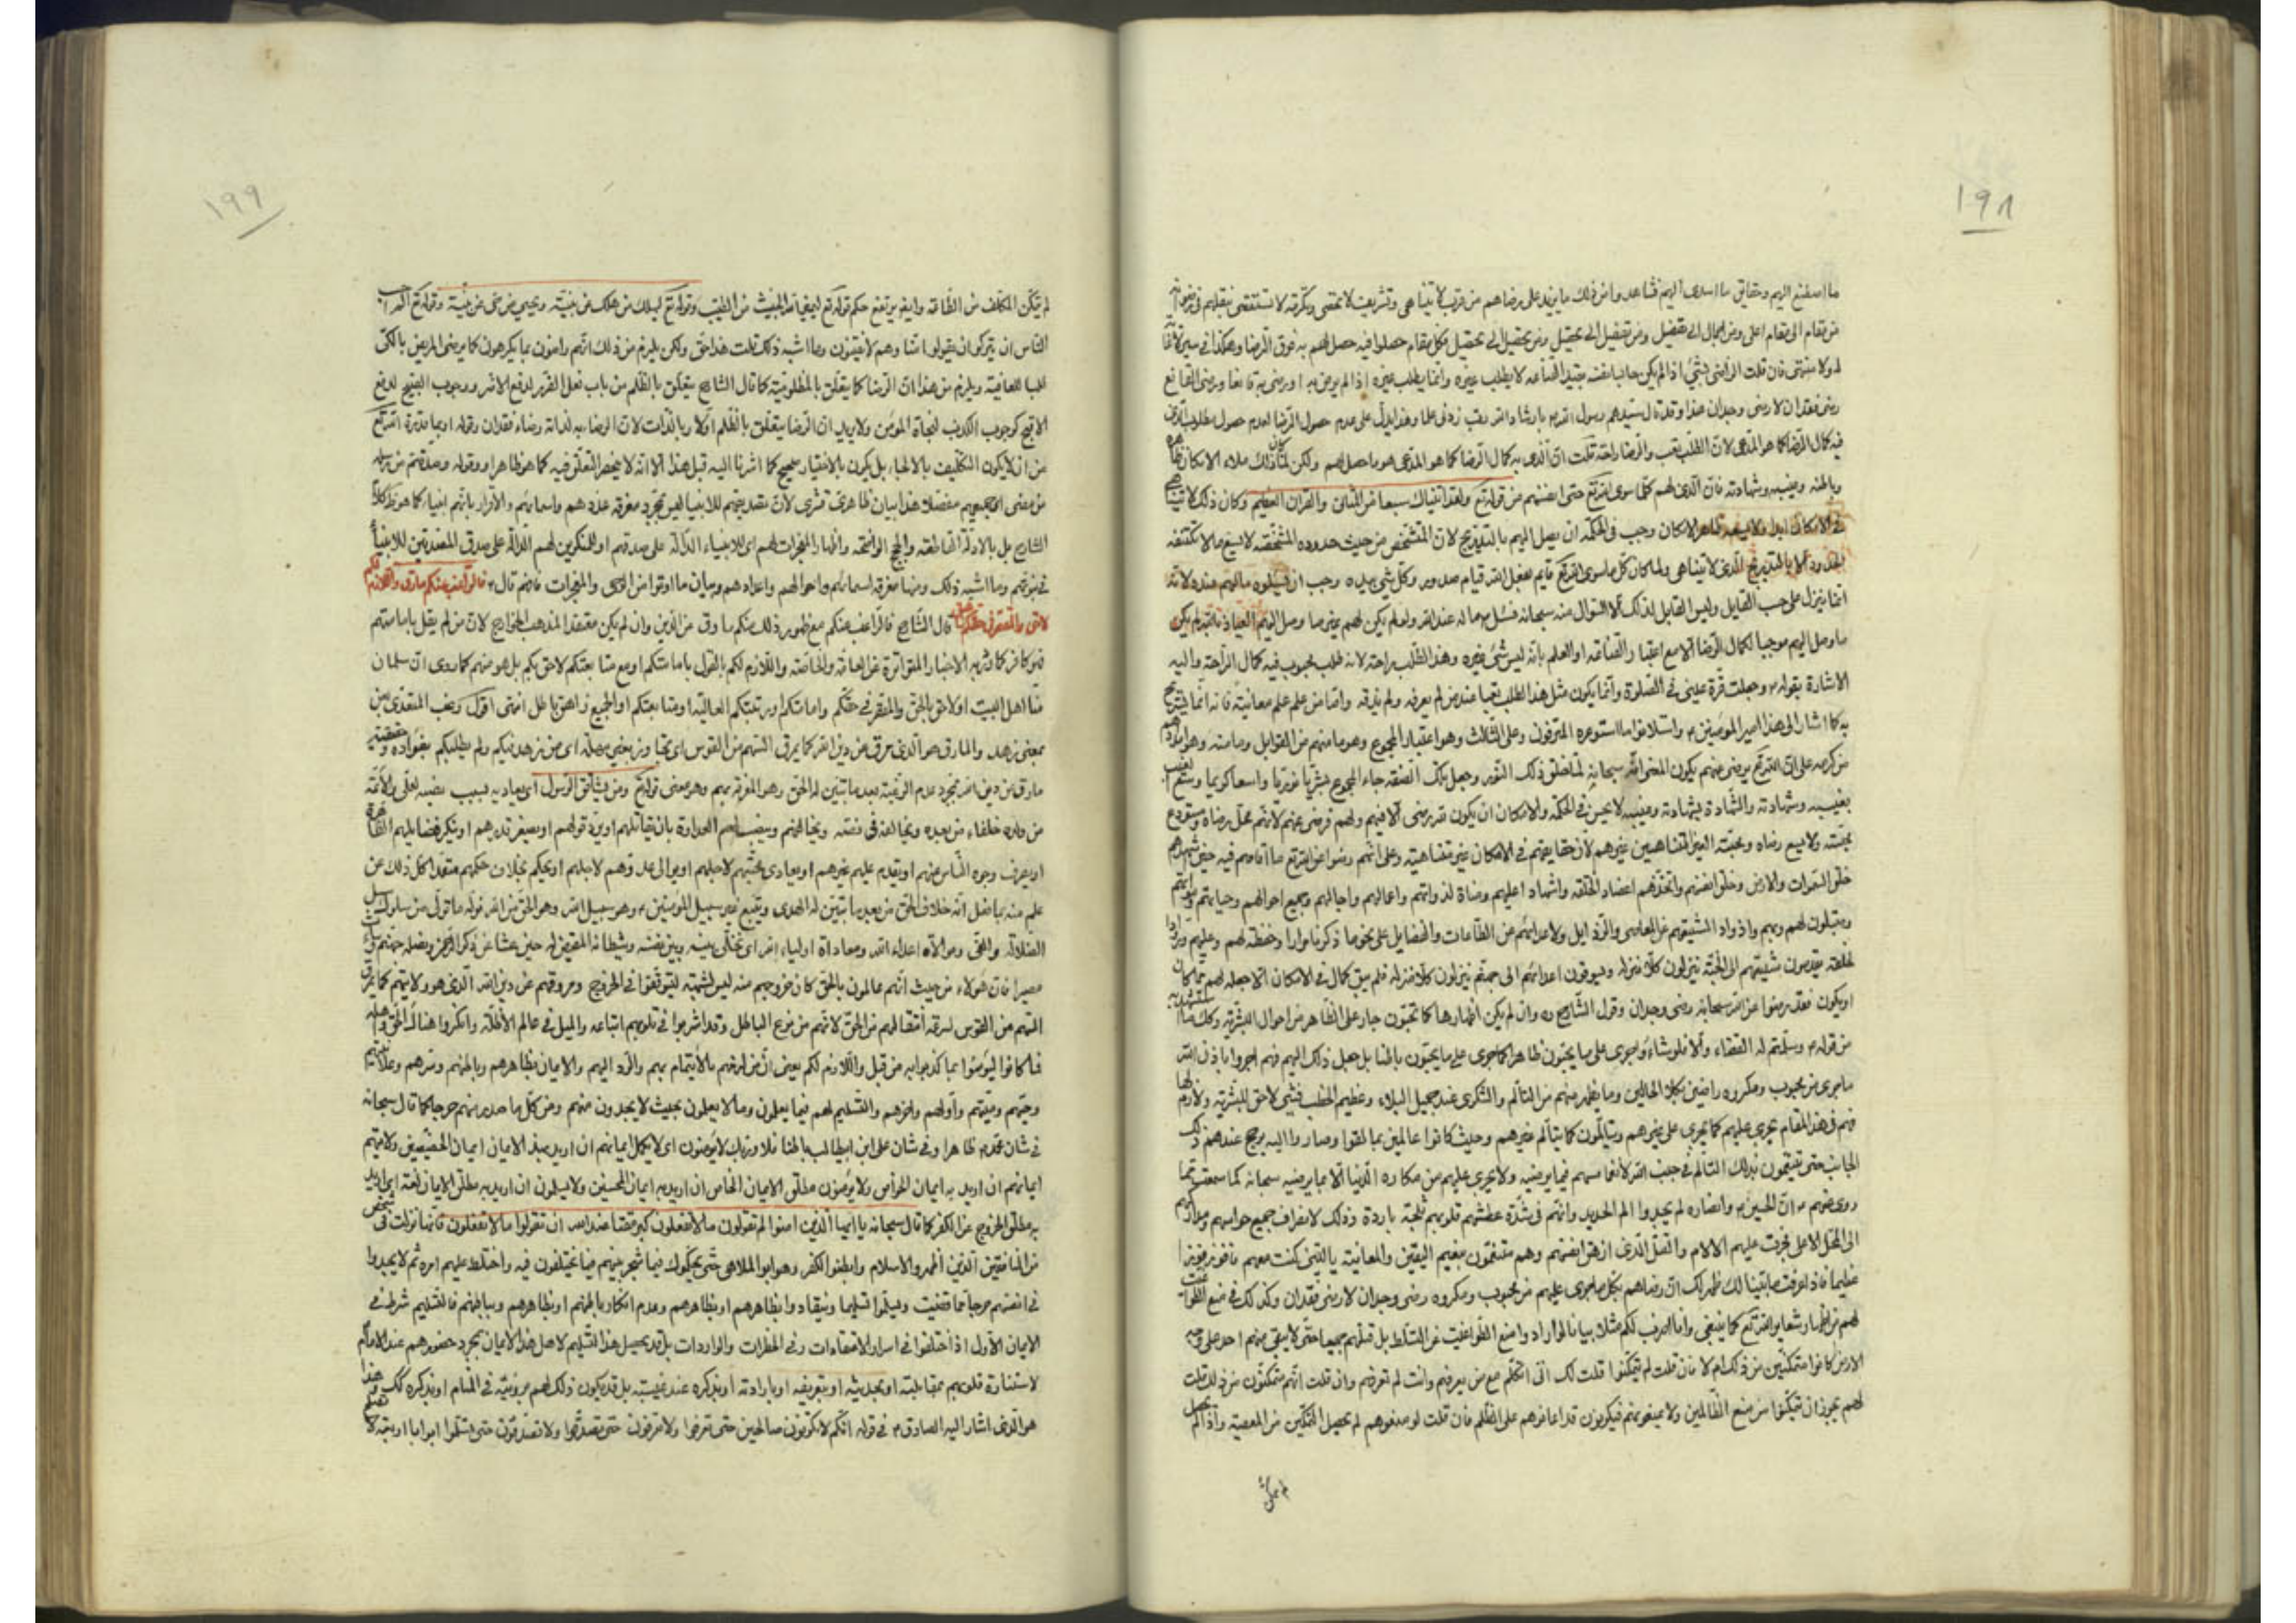 ١٩٨
ما اصطنع اليهم وحقايق ما اسدى اليهم فشاهد وانّ ذلك ما يزيد على رضاهم من قرب لا يتناهى وتشريف لا يحصى وتكرمة لا تستقصى ينقلهم
من مقام الى مقام اعلى ومن اجمال الى تفصيل ومن تفصيل الى تحصيل ومن تحصيل الى تحصيل فكل مقام حصلوا فيه حصل لهم به فوق الرضا وهكذا في سيرهم
له ولا منتهى فان قلت الراضى بشئ اذا لم يكن حابسا نفسه بقيد القناعة لا يطلب غيره وانّما يطلب غيره اذا لم يرض به او رضى به قانعا ورضى القانع
رضى فقدان لا رضى وجدان هذا وقد قال سيدهم رسول الله بارشاد الله رب زدنى علما وهذا يدلّ على عدم حصول الرضا لعدم حصول مطلوب الذى
فيه كمال الرضا كما هو المدّعى لانّ الطلب تعب والرضا راحة قلت انّ الذى به كمال الرضا كما هو المدّعى هو ما حصل لهم ولكن لمّا كان ذلك ملاء الامكان ظاهره
وباطنه وغيبه وشهادته فانّ الذى لهم كلّما سوى الله تع حتى انفسهم من قوله تع ولقد اتيناك سبعا من المثانى والقران العظيم وكان ذلك لا يتناهى
في الامكان ابدا ولا يسعه ظاهر الامكان وجب في الحكمة ان يصل اليهم بالتدريج لانّ المتشخص من حيث حدوده المشخّصة لا يسع ما لا تكتنفه
الحدود الا بالتدريج الذى لا يتناهى ولما كان كلّ ما سوى الله تع قايم بفعل الله قيام صدور وكلّ شئ بيده وجب ان يسئلوه ما لهم عنده لانّه
انّما ينزل على حسب القابل وليس القابل لذلك الا السؤال منه سبحانه فسئل ما له عند الله ولو لم يكن لهم غير ما وصل اليهم العياذ بالله لم يكن
ما وصل اليهم موجبا لكمال الرضا الا مع اعتبار القناعة او العلم بانّه ليس شئ غيره وهذا الطلب راحة لانه طلب محبوب فيه كمال الراحة واليه
الاشارة بقوله وجعلت قرّة عينى في الصلوة وانّما يكون مثل هذا الطلب تعبا عند من لم يعرفه ولم يذقه وامّا من علم علم معاينة فانه انّما يستريح
به كما اشار الى هذا امير المؤمنين واستلانوا ما استوعره المترفون وعلى الثالث وهو اعتبار المجموع وهو ما منهم من القوابل وما منه وهو
من كرمه على انّ الله تع يرضى عنهم يكون المعنى انّ الله سبحانه لمّا خلق ذلك النور وجعل بتلك الصفة جاء المجموع بشريا نوريا واسعا كريما وسع الغيب
بغيبه وشهادته والشهادة بشهادته وغيبه لا يحسن في الحكمة والامكان ان يكون قد يرضى الا فيهم ولهم فرضى عنهم لانّهم محل رضاه ومستودع
محبّته ولا يسع رضاه ومحبّته الغير المتناهيين غيرهم لانّ حقايقهم في الامكان غير متناهية وعلى انّهم رضوا عن الله تع ما اقامهم فيه حين اشهدهم
خلق السموات والارض وخلق انفسهم واتخذهم اعضاد الخلقه واشهاد اعليهم ومناة لذواتهم واعمالهم واجالهم وجميع احوالهم وحياتهم
ومقبلون لهم وبهم واذواد الشيعتهم عن المعاصى والرّذايل ولاعدائهم عن الطاعات والفضايل على نحو ما ذكرنا مرارا وحفظة لهم وعليهم وروادا
لخلقه يقدمون شيعتهم الى الجنّة ينزلون كلا منزله ويسوقون اعدائهم الى جهنّم ينزلون كلا منزله فلم يبق كمال في الامكان الا جعله لهم مما كان
او يكون فقد رضوا عن الله سبحانه رضى وجدان وقول الشارح ره وان لم يكن اظهارها كما تحبّون جار على الظاهر من احوال البشرية وكذلك ما
من قوله وسلّمتم له القضاء والا فلو شاءوا جرى على ما يحبّون ظاهرا كما جرى على ما يحبّون باطنا بل جعل ذلك اليهم فهم اجروا باذن الله
ما جرى من محبوب ومكروه راضين بكلا الحالين وما يظهر منهم من التالّم والشكوى عند جميل البلاء وعظيم الخطب فشئ لاحق للبشرية ولازم لها
فهم في هذا المقام يجرى عليهم كما يجرى على غيرهم ويتالّمون كما يتالّم غيرهم وحيث كانوا عالمين بما لقوا وصاروا اليه يرجح عندهم ذلك
الجانب حتى يتنعّمون بذلك التالّم في جنب الله لانغماسهم فيما يرضيه ولا يجرى عليهم من مكاره الدنيا الا ما يرضيه سبحانه كما سمعت مما
روى عنهم انّ الحسين وانصاره لم يجدوا الم الحديد وانّهم في شدّة عطشهم قلوبهم ثلجة باردة وذلك لانصراف جميع حواسهم ومداركهم
الى المحلّ الاعلى فجرت عليهم الالام والقتل الذى ازهق انفسهم وهم متنعّمون بنعيم اليقين والمعاينة يا ليتنى كنت معهم فافوز فوزا
عظيما فاذا عرفت ما بيّنا لك ظهر لك انّ رضاهم بكل ما جرى عليهم من محبوب ومكروه رضى وجدان لا رضى فقدان وكذلك في منع الطواغيت
لهم من اظهار شعاير الله تع كما ينبغى وانا اضرب لكم مثلا بيانا لو ارادوا منع الطواغيت عن التسلّط بل قتلهم جميعا حتّى لا يبقى منهم احد على وجه
الارض كانوا متمكّنين من ذلك ام لا فان قلت لم يتمكّنوا قلت لك انّى اتكلّم مع من يعرفهم وانت لم تعرفهم وان قلت انّهم متمكّنون من ذلك قلت
لهم يجوز ان يتمكّنوا من منع الظالمين ولا يمنعونهم فيكونون قد اعانوهم على الظلم فان قلت لو منعوهم لم يحصل التمكّين من المعصية واذا لم يحصل
١٩٩
لم يتمكّن المكلّف من الطاعة وايضا يرتفع حكم قوله تع ليميز الله الخبيث من الطيّب وقوله تع ليهلك من هلك عن بيّنة ويحيى من حىّ عن بيّنة وقوله تع الم احسب
الناس ان يتركوا ان يقولوا امنّا وهم لا يفتنون وما اشبه ذلك قلت هذا حق ولكن يلزم من ذلك انّهم راضون بما يكرهون كما يرضى المريض بالكىّ
طلبا للعافية ويلزم من هذا انّ الرضا كما يتعلّق بالمظلوميّة كما قال الشارح يتعلّق بالظلم من باب فعل الضرر لدفع الاضرّ ووجوب القبيح لدفع
الاقبح كوجوب الكذب لنجاة المؤمن ولا يريد انّ الرضا يتعلّق بالظلم اوّلا وبالذات لانّ الرضا به لذاته رضاء فقدان وقوله او بما قدّره الله تع
من ان لا يكون التكليف بالالجاء بل يكون بالاختيار صحيح كما اشرنا اليه قبل هذا الا انّه لا ينحصر التعلّق فيه كما هو ظاهر او وقوله وصدّقتم من رسله
من مضى اى جميعهم مفصّلا هذا بيان ظاهرى قشرى لانّ تصديقهم للانبياء ليس مجرّد معرفة عددهم واسمائهم والاقرار بانّهم انبياء كما هو ظ كلام
الشارح بل بالادلّة القاطعة والحجج الواضحة واظهار المعجزات لهم اى للانبياء الدالّة على صدقهم او للمنكرين لهم الدالّة على صدق المصدّقين للانبياء
في نبوّتهم وما اشبه ذلك ومنها معرفة اسمائهم واحوالهم واعدادهم وبيان ما اوتوا من الوحى والمعجزات فافهم قال فالراغب عنكم مارق واللازم لكم
لاحق والمقصّر في حقّكم زاهق قال الشارح فالراغب عنكم مع ظهور ذلك منكم مارق من الدّين وان لم يكن معتقدا لمذهب الخوارج لانّ من لم يقل بامامتهم
فهو كافر كما وردت به الاخبار المتواترة عن العامّة والخاصّة واللازم لكم بالقول بامامتكم او مع متابعتكم لاحق بكم بل هو منهم كما روى انّ سلمان
منّا اهل البيت او لاحق بالحق والمقصّر في حقّكم وامامتكم او رتبتكم العالية او متابعتكم او الجميع زاهق باطل انتهى اقول رغب المتعدّى بعن
بمعنى زهد والمارق هو الذى مرق عن دين الله كما يمرق السهم من القوس اى يخرج
مارق من دين الله بمجرّد عدم الرغبة بعد ما تبيّن له الحق وهو المعرفة بهم وهو معنى قوله تع ومن يشاقق الرسول اى يعاديه بسبب نصبه لعلى والائمّة
من ولده خلفاء من بعده ويخالفه في نصّه ويخالفهم وينصب لهم العداوة بان يقاتلهم او يردّ قولهم او يصغر قدرهم او ينكر فضايلهم الظاهرة
او يصرف وجوه الناس عنهم او يقدم عليهم غيرهم او يعادى محبّيهم لاجلهم او يوالى عدوّهم لاجلهم او يحكم بخلاف حكمهم متعمّدا كل ذلك عن
علم منه بما فعل انّه خلاف الحق من بعد ما تبيّن له الهدى ويتّبع غير سبيل المؤمنين وهو سبيل الله وهو الحق من الله نولّه ما تولّى من سلوك سبيل
الضلالة والغىّ وموالاة اعداء الله ومعاداة اولياء الله اى نخلّى بينه وبين نفسه وشيطانه المقيّض له حين عشا عن ذكر الرحمن ونصله جهنّم وسائت
مصيرا فانّ هؤلاء من حيث انّهم عالمون بالحق كان خروجهم منه ليس لشبهة ليتوقفوا في الخروج ومروقهم عن دين الله الذى هو ولايتهم كما يمرق
السهم من القوس لسرعة انتقالهم من الحق لانّهم من نوع الباطل وقد اشربوا في قلوبهم اتباعه والميل في عالم الاظلّة وانكروا هنالك الحق واهله
فما كانوا ليؤمنوا بما كذبوا به من قبل واللازم لكم يعنى انّ من لزمهم بالايتمام بهم والرّد اليهم والايمان بظاهرهم وباطنهم وسرّهم وعلانيتهم
وحيّهم وميّتهم واوّلهم واخرهم والتسليم لهم فيما يعلمون وما لا يعلمون بحيث لا يجدون منهم ومن كلّ ما صدر عنهم حرجا كما قال سبحانه
في شان محمّد ظاهرا وفي شان على ابن ابيطالب باطنا فلا وربّك لا يؤمنون اى لا يكمل ايمانهم ان اريد بهذا الايمان ايمان الخصّيصين ولا يتم
ايمانهم ان اريد به ايمان الخواص ولا يؤمنون مطلق الايمان الخاص ان اريد به ايمان المحبّين ولا يسلمون ان اريد به مطلق الايمان لغة اى اريد
به مطلق الخروج عن الكفر كما قال سبحانه يا ايها الذين امنوا لم تقولون ما لا تفعلون كبر مقتا عند الله ان تقولوا ما لا تفعلون فانّما نزلت في شخص
من المنافقين الذين اظهروا الاسلام وابطنوا الكفر وهو ابو الملاهى حتّى يحكّموك فيما شجر بينهم فيما يختلفون فيه واختلط عليهم امره ثم لا يجدوا
في انفسهم حرجا مما قضيت ويسلّموا تسليما وينقادوا بظاهرهم او بظاهرهم وعدم انكار باطنهم او بظاهرهم وبباطنهم فالتسليم شرط في
الايمان الاوّل اذا اختلفوا في اسرار الاقتضاءات وفي الخطرات والواردات بل قد يحصل هذا التسليم لاهل هذا الايمان بمجرّد حضورهم عند الامام
لاستنارة قلوبهم بمقابلته او بحديثه او بتعريفه او بارادته او بذكره عند غيبته بل قد يكون ذلك لهم برؤيته في المنام او بذكره كك وهذا
هو الذى اشار اليه الصادق في قوله انّكم لا تكونون صالحين حتى تعرفوا ولا تعرفون حتى تصدّقوا ولا تصدّقون حتى تسلّموا ابوابا اربعة لا